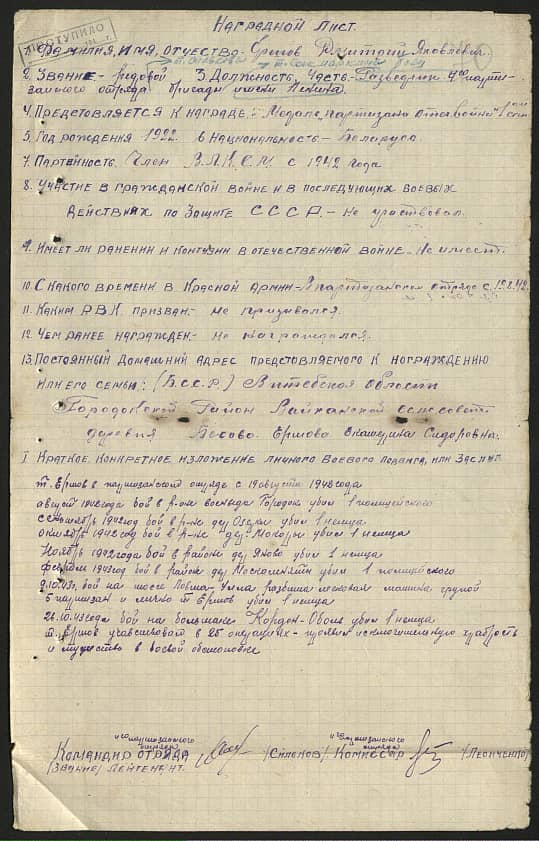 НАГРАДНОЙ ЛИСТ.
ПОСТУПИЛО
1. ФАМИЛИЯ, ИМЯ, ОТЧЕСТВО - Ершов Дмитрий Яковлевич
2. ЗВАНИЕ - рядовой 3. ДОЛЖНОСТЬ, ЧАСТЬ - Разведчик 4го парти-
занского отряда бригады имени Ленина.
4. ПРЕДСТОВЛЯЕТСЯ К НАГРАДЕ, - Медаль партизана отеч войны 1 ой ст
5. ГОД РОЖДЕНИЯ 1922. 6 НАЦИОНАЛЬНОСТЬ - Беларусс
7. ПАРТЕЙНОСТЬ. Член В.Л.К.С.М. с 1942 года
8. УЧАСТИЕ В ГРАЖДАНСКОЙ ВОЙНЕ И В ПОСЛЕДУЮЩИХ БОЕВЫХ
ДЕЙСТВИЯХ ПО ЗАЩИТЕ СССР. - Не участвовал.
9. ИМЕЕТ ЛИ РАНЕНИИ И КОНТУЗИИ В ОТЕЧЕСТВЕННОЙ ВОЙНЕ - Не имеет.
10. С КАКОГО ВРЕМЕНИ В КРАСНОЙ АРМИИ - В партизанском отряде с 19.8.42.
11. КАКИМ РВК ПРИЗВАН - не призывался.
12. ЧЕМ РАНЕЕ НАГРАЖДЕН - не награждался.
13. ПОСТОЯННЫЙ ДОМАШНИЙ АДРЕС ПРЕДСТОВЛЯЕМОГО К НАГРАЖДЕНИЮ
ИЛИ ЕГО СЕМЬИ: (Б.С.С.Р.) Витебская область
Городокский Район Вайханской сельсовет
деревня Ершова Екатерина Сидоровна.
I КРАТКОЕ, КОНКРЕТНОЕ ИЗЛОЖЕНИЕ ЛИЧНОГО БОЕВОГО ПОДВИГА, ИЛИ ЗАСЛУГ
т. Ершов в партизанском отряде с 19 августа 1942 года
август 1942 года бой в р-оне Городок убил 1 полицейского
сентябрь 1942 год бой в р-не дер Озерки убил 1 немца
октябрь 1942 год бой в р-не дер. убил 1 немца
Ноябрь 1942 года бой в районе дер Яново убил 1 немца
февраль 1943 год бой в район дер убил 1 полицейского
9.10.43г. бой на шоссе Улла разбита легковая машина групой
5 партизан и лично т Ершов убил 1 немца
26.10.43 года бой на большаке Кордон-Оболь убил 1 немца
т. Ершов учавствовал в 25 операциях - проявил исключительную храбрость
и мужество в боевой обстановке
4 го партизанского отряда
4 го партизанского отряда
КОМАНДИР ОТРЯДА /Силонов/ КОМИССАР /Леонченко/
/ЗВАНИЕ/ ЛЕЙТЕНЕНТ.